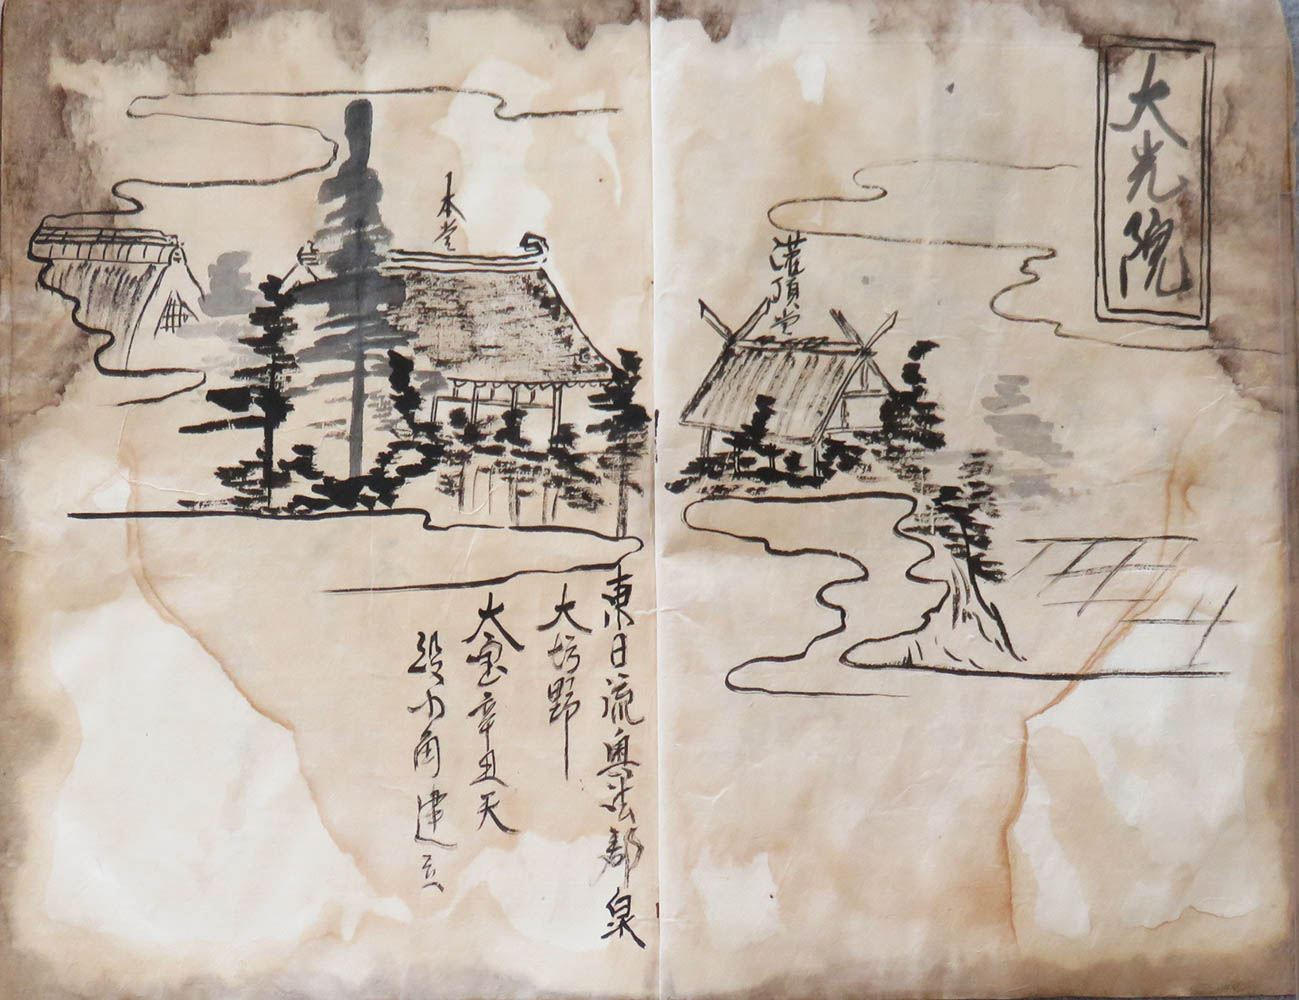 大光院
灌頂堂
本堂
東日流奥法郡泉
大坊野
大宝辛丑天
役小角建立